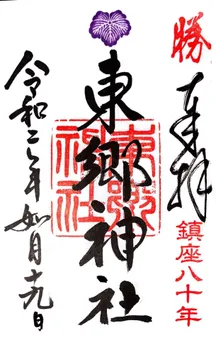 勝
奉拝
鎮座八十年
東郷神社
東郷
神社
令和二年如月十九日